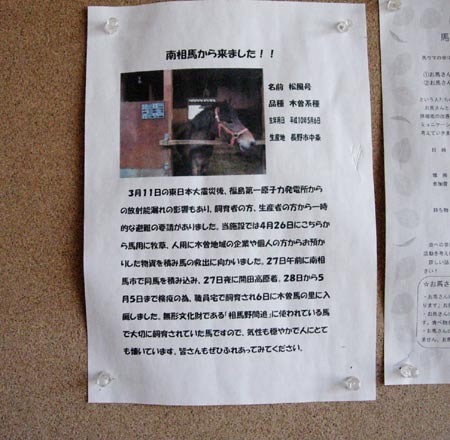 南相馬から来ました！！
名前 松風号
品種 木曽系種
生年月日 平成10年5月6日
生産地 長野市中条
3月11日の東日本大震災後、福島第一原子力発電所から
の放射能漏れの影響もあり、飼育者の方、生産者の方から一時
的な避難の要請がありました。当施設では4月26日にこちらか
ら馬用に牧草、人用に木曽地域の企業や個人の方からお預か
りした物資を積み馬の救出に向かいました。27日午前に南相
馬市で同馬を積み込み、27日夜に開田高原着、28日から5
月5日まで検疫の為、職員宅で飼育され6日に木曽馬の里に入
厩しました。無形文化財である「相馬野間追」に使われている馬
で大切に飼育されていた馬ですので、気性も穏やかで人にとて
も懐いています。皆さんもぜひふれあってみてください。
馬
①お馬さ
②お馬さん
という人たち
お馬さんと
日時
場所
参加費
持ち物
☆お馬さ
・お馬さん
・お馬さん